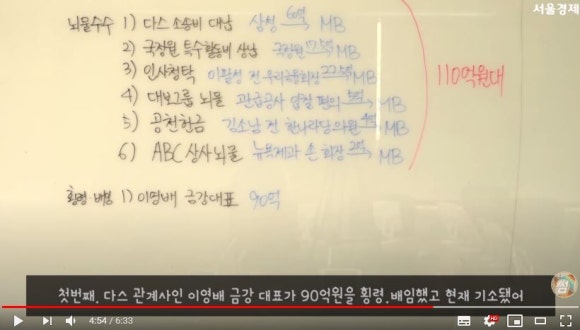 서울경제
뇌물수수 1) 다스 소송비 대납 삼성 60억→ MB
2) 국정원 특수활동비 상납 국정원 → MB
3) 인사청탁 이팔성 전 우리금융회장 → MB
4) 대보그룹 뇌물 관급공사 편의 5억→ MB
5) 공천헌금 김소남 전 한나라당의원 4억→ MB
6) ABC상사 뇌물 뉴욕제과 손 회장 2억→ MB
110억원대
횡령·배임 1) 이영배 금강대표 90억
첫번째, 다스 관계사인 이영배 금강 대표가 90억원을 횡령.배임했고 현재 기소됐어
4:54 / 6:33